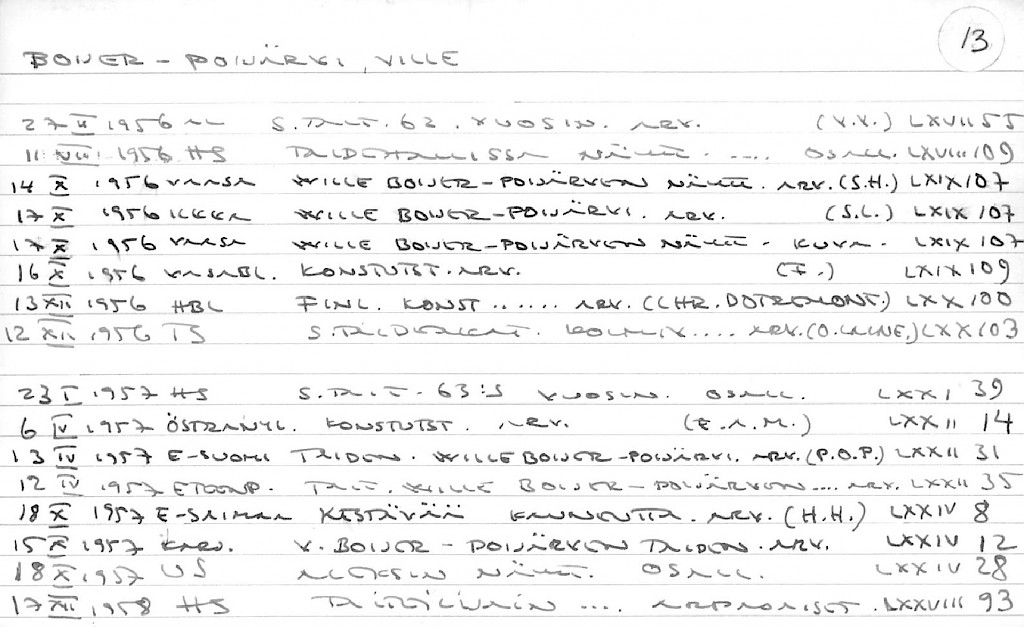 13
BOIJER-POIJÄRVI, VILLE
27 II 1956 AL S.TAIT. 62. VUOSIN. ARV. (V.V.) LXVII 55
11 VIII 1956 HS TAIDEHALLISSA NÄYTT. .... OSALL. LXVIII 109
14 X 1956 VAASA WILLE BOIJER-POIJÄRVEN NÄYTT. ARV. (S.H.) LXIX 107
17 X 1956 ILKKA WILLE BOIJER-POIJÄRVI. ARV. (S.L.) LXIX 107
17 X 1956 VAASA WILLE BOIJER-POIJÄRVEN NÄYTT. KUVA. LXIX 107
16 X 1956 VASABL. KONSTUTST. ARV. (F.) LXIX 109
13 XII 1956 HBL FINL. KONST ...... ARV. (CHR. DOTREMONT.) LXX 100
12 XII 1956 TS S.TAIDEAKAT. KOLMIV.... ARV. (O. LAINE.) LXX 103
23 I 1957 HS S.TAIT. 63:S VUOSIN. OSALL. LXXI 39
6 IV 1957 ÖSTRANYL. KONSTUTST. ARV. (E.A.M.) LXXII 14
13 IV 1957 E-SUOMI TAIDEN. WILLE BOIJER-POIJÄRVI. ARV. (P.O.P.) LXXII 31
12 IV 1957 ETEENP. TAIT. WILLE BOIJER-POIJÄRVEN.... ARV. LXXII 35
18 X 1957 E-SAIMAA KESTÄVÄÄ KAUNEUTTA. ARV. (H.H.) LXXIV 8
15 X 1957 KARJ. V. BOIJER-POIJÄRVEN TAIDEN. ARV. LXXIV 12
18 X 1957 US ALEKSIN NÄYTT. OSALL. LXXIV 28
17 XII 1958 HS .... ARPAONNISET. LXXVIII 93